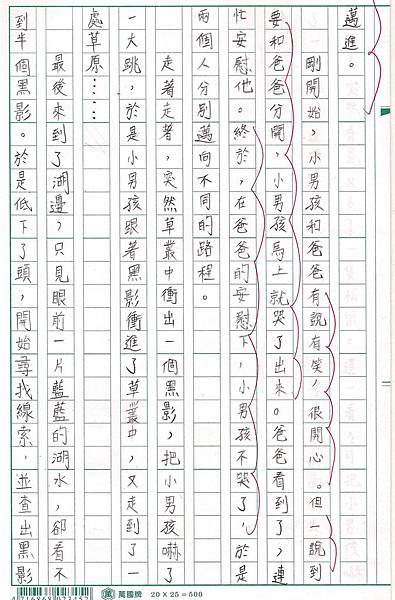 邁進。
剛開始，小男孩和爸爸有說有笑，很開心。但一說到
要和爸爸分開，小男孩馬上就哭了出來。爸爸看到了，連
忙安慰他。終於，在爸爸的安慰下，小男孩不哭了，於是
兩個人分別邁向不同的路程。
走著走著，突然草叢中衝出一個黑影，把小男孩嚇了
一大跳，於是小男孩跟著黑影衝進了草叢中，又走到了一
處草原……
最後來到了湖邊，只見眼前一片藍藍的湖水，卻看不
到半個黑影。於是低下了頭，開始尋找線索，並查出黑影
萬 萬國牌 20 X 25 = 500